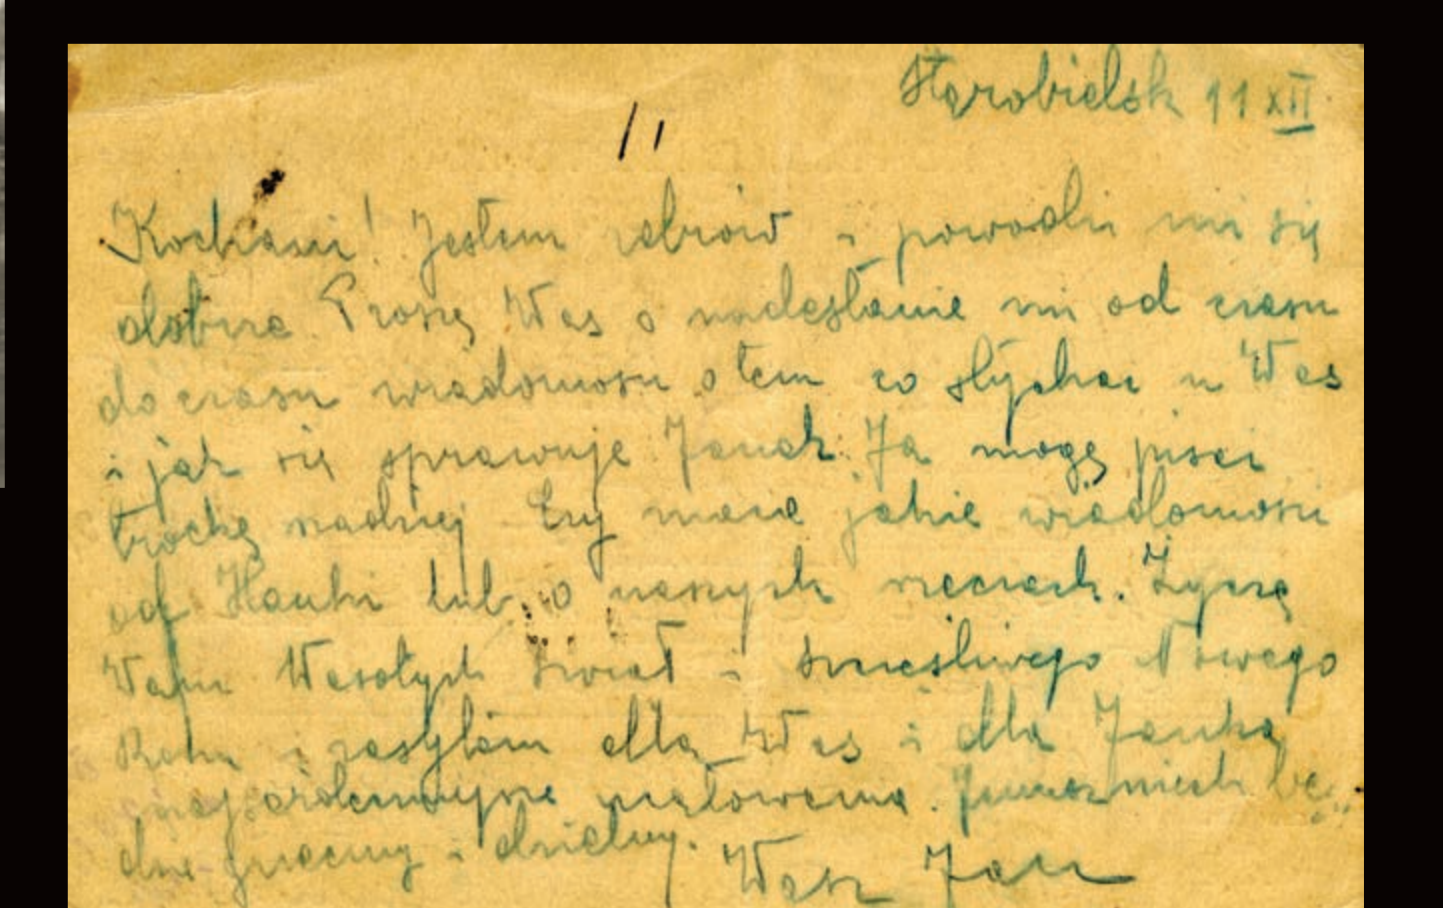 Starobielsk 11 XII
Kochani! Jestem zdrów i powodzi mi się
dobrze. Proszę Was o nadesłanie mi od czasu
do czasu wiadomości o tem co słychać u Was
i jak się sprawuje Janek. Ja mogę pisać
trochę rzadziej. Czy macie jakie wiadomości
od Hanki lub o naszych rzeczach. Życzę
Wam Wesołych Świąt i szczęśliwego Nowego
Roku i zasyłam dla Was i dla Janka
najserdeczniejsze ucałowania. niech bę-
dzie grzeczny i dzielny.
Wasz Jan